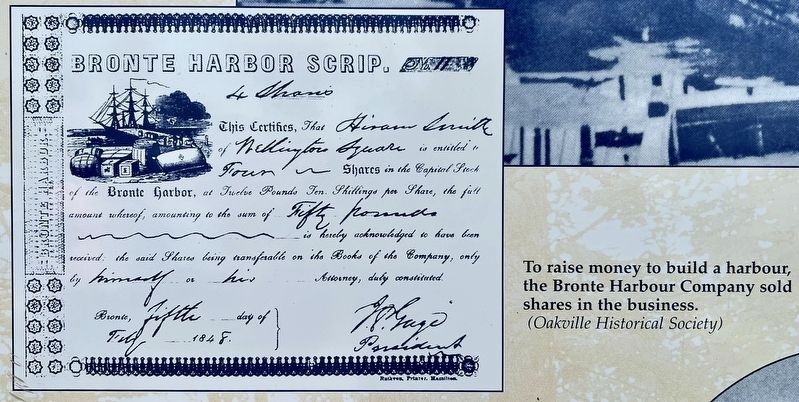 BRONTE HARBOR SCRIP.
4 Shares
This Certifies, That Hiram Smith
of Wellington Square is entitled to
Four Shares in the Capital Stock
of the Bronte Harbor, at Twelve Pounds Ten Shillings per Share, the full
amount whereof, amounting to the sum of Fifty pounds
is hereby acknowledged to have been
received: the said Shares being transferable on the Books of the Company, only
by himself or his Attorney, duly constituted.
Bronte, fifth day of
1848.
President
Ruthven, Printer, Hamilton.
BRONTE HARBOR
To raise money to build a harbour,
the Bronte Harbour Company sold
shares in the business.
(Oakville Historical Society)